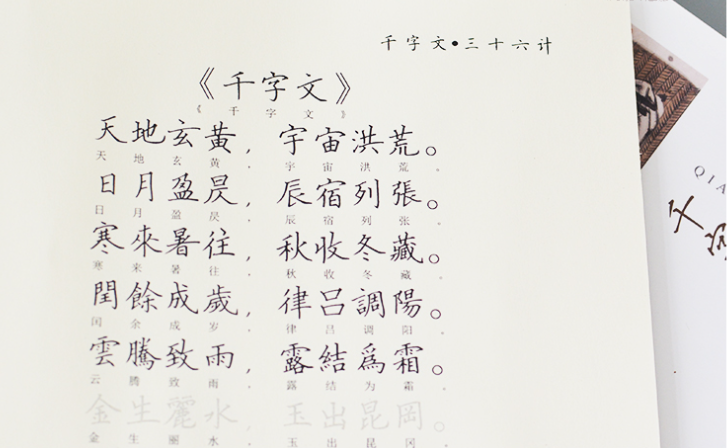 千字文•三十六计
《千字文》
《千字文》
天地玄黃，宇宙洪荒。
天地玄黄，宇宙洪荒。
日月盈昃，辰宿列張。
日月盈昃，辰宿列张。
寒來暑往，秋收冬藏。
寒来暑往，秋收冬藏。
閏餘成歲，律吕調陽。
闰余成岁，律吕调阳。
雲騰致雨，露結爲霜。
云腾致雨，露结为霜。
金生麗水，玉出昆岡。
金生丽水，玉出昆冈。
QIA
千字